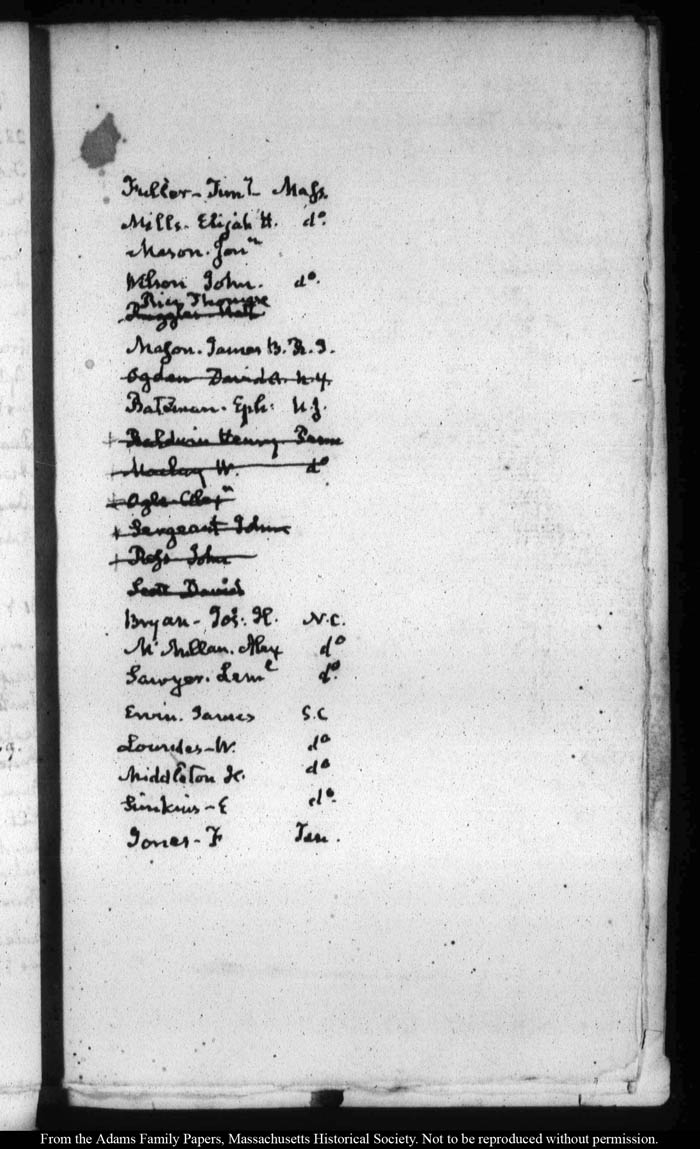 Fuller - Timy. Mass.
Mills - Elijah H. do.
Mason. Jonn
Wilson John. do.
Rice Thomas
Ruggles Natl
Mason. James B. R.I.
Ogden David A. N.Y.
Bateman. Eph: N.J.
+ Baldwin Henry Penn
+ Maclay W. do
+ Ogle Alexr
+ Sergeant John
+ Ross John
Scott David
Bryan - Jos. H. N.C.
Mc Millan. Alex do
Sawyer. Leml do.
Ervin. James S.C
Lowndes - W. do
Middleton H. do
Simkins - E do.
Jones - F Ten.
From the Adams Family Papers, Massachusetts Historical Society. Not to be reproduced without permission.